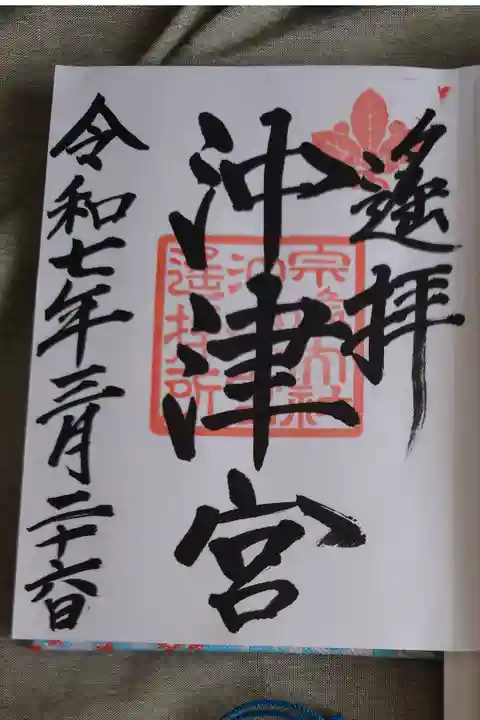 遥拝
沖津宮
宗像大社
沖津宮
遥拝所
令和七年三月二十六日